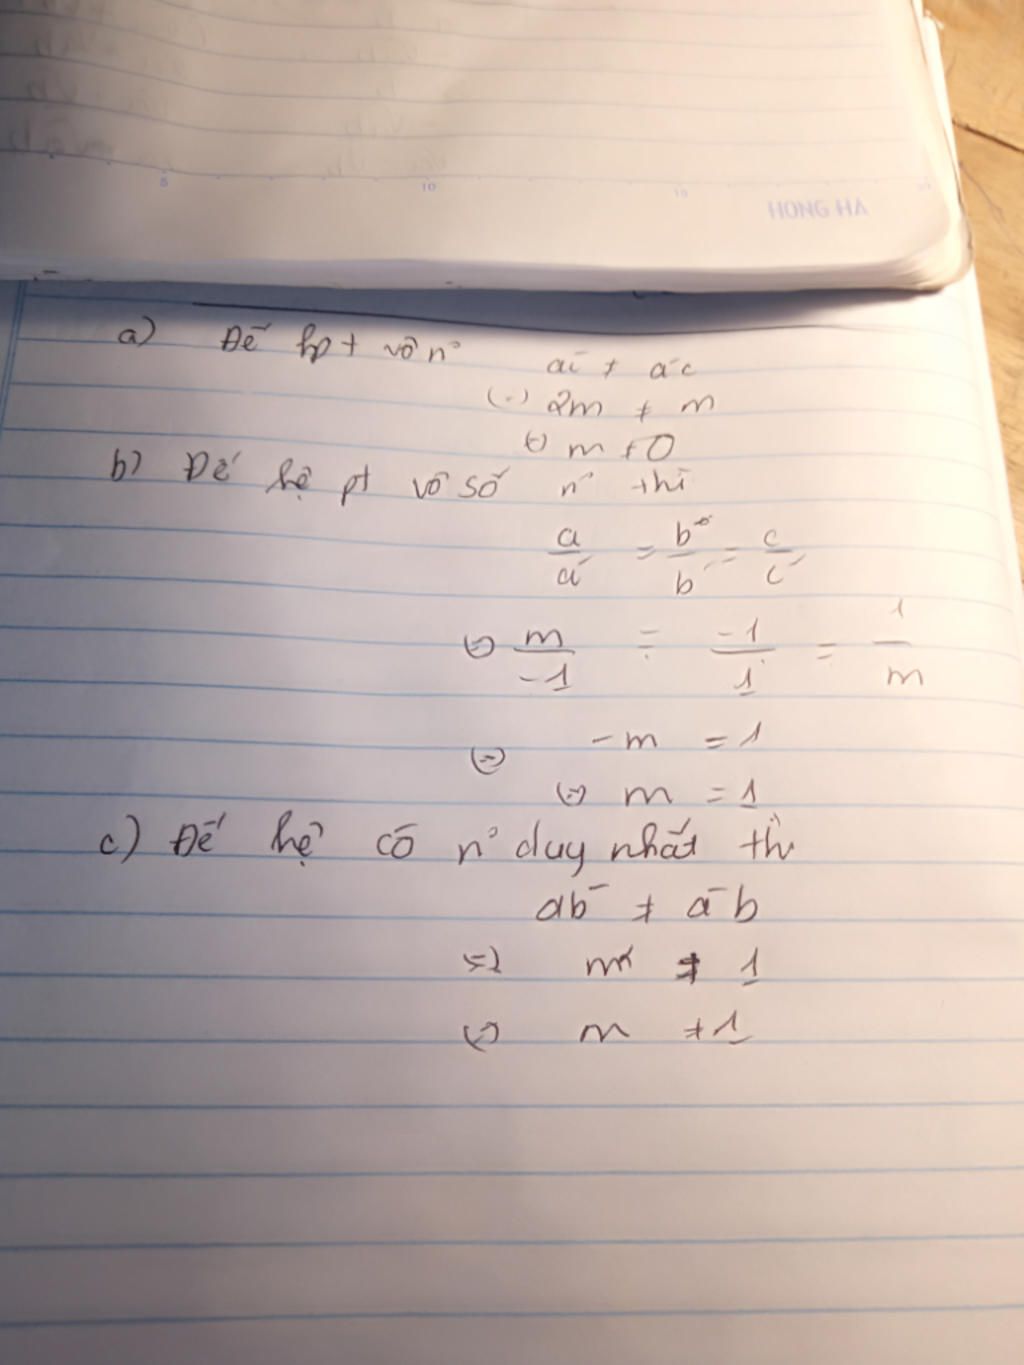 5 10 15 20
HONG HA
a) Để hpt vô n⁰
ac̄ ≠ a'c
(-) 2m ≠ m
(-) m ≠ 0
b) Để hệ pt vô số n⁰ thì
a/a' = b/b' = c/c'
(=) m/-1 = -1/1 = 1/m
(=) -m = 1
(-) m = 1
c) Để hệ có n⁰ duy nhất thì
ab' ≠ a'b
=) m ≠ 1
(-) m ≠ 1